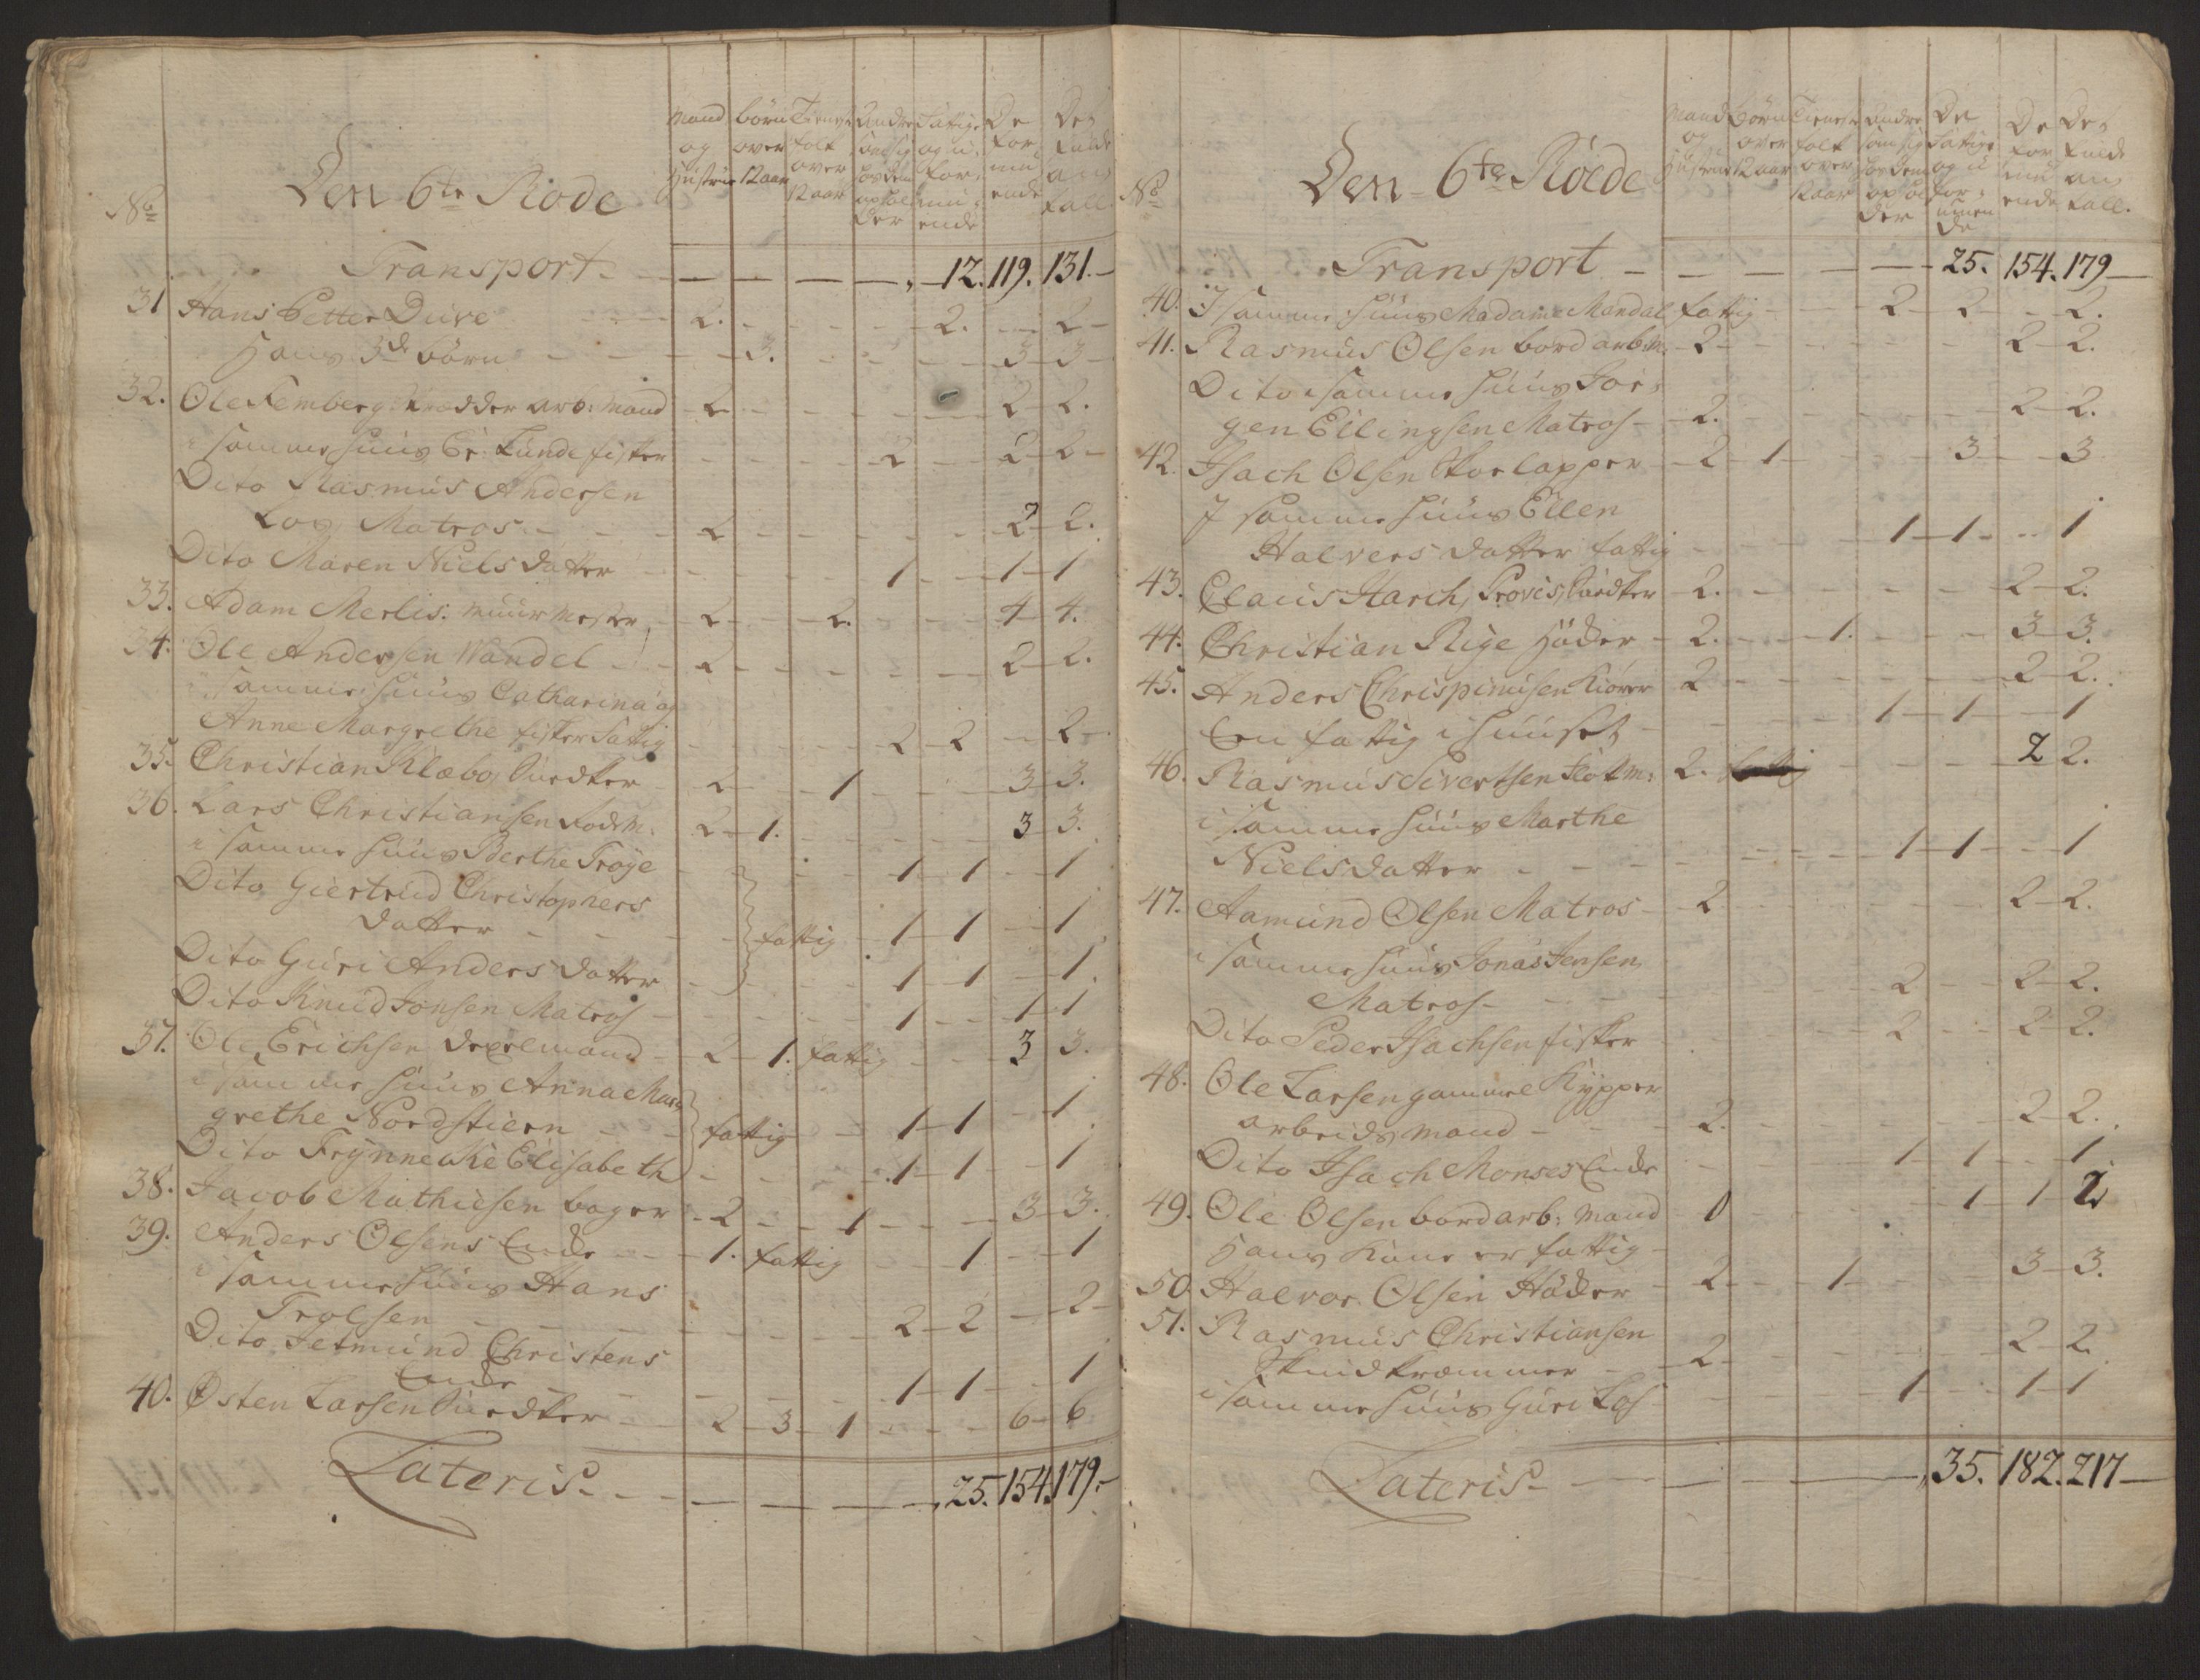 No
Den 6te Rode
Mand og Hustrue
børn over 12 aar
Tieneste folk over 12 aar
Andre som sig hos dem opholder
Fattige og u-formuende
De formuende
Det fulde antall
Transport - - - - - 12. 119. 131.-
31 Hans Petter Duve - 2. - - - - 2. - 2-
Hans 3de børn - - 3. - - - 3-3-
32. Ole Femberg Kredder arb: mand -2- - - - - 2-2.
i samme huus Er. Lunde fisker - - - 2 - 2-2-
Dito Rasmus Andersen
Los Matros - - 2 - - - - - 2-2.
Dito Maren Nielsdatter - - - - 1 - - 1-1
33. Adam Merlis. muurmester - 2 - - 2. - - - 4-4.
34. Ole Andersen Wandel - - 2 - - - - - 2-2.
i samme huus Catharina og
Anne Margrethe fisker fattig - - - - 2-2 - 2-
35. Christian Klæboe Kudsker - 2 - 1 - - - 3-3.
36. Lars Christiansen Rodem: 2-1. - - - - 3-3.
i samme huus Berthe Troye - - - 1-1 - -1
Dito Giertrud Christophers
datter - - - fattig - 1-1 - -1
Dito Guri Andersdatter - - - 1-1 - -1.
Dito Knud Jonsen Matros - - - - 1 - - 1-1
37. Ole Erichsen deeelmand - 2-1. fattig - - 3 3.
i samme huus Anna Mar
grethe Nordstiern - - fattig - 1-1 - 1.
Dito Frynneche Elisabeth - - - 1-1 - -1
38. Jacob Mathiesen bager - 2 - - 1 - - - 3-3.
39. Anders Olsens Enke - - 1. fattig - - 1 - -1
i samme huus Hans
Trolsen - - - - - - 2-2 - -2-
Dito Jetmund Christens
Enke - - - - - 1-1 - -1
40. Østen Larsen Kudsker - 2-3-1 - - - 6-6
Lateris - - - - - 25. 154. 179.-
No
Den 6te Rode
Mand og Hustrue
Børn over 12 aar
Tieneste folk over 12 aar
Andre som sig hos dem opholder
De Fattige og u formuende
De formuende
Det fulde antall.
Transport - - - - - 25. 154. 179-
40. I samme huus Madame Mandal fattig - - 2 - 2 - - 2.
41. Rasmus Olsen bord arb: M. - 2 - - - - - 2-2.
Dito i samme huus Jør-
gen Ellingsen Matros - 2. - - - - 2-2.
42. Isach Olsen Skoelapper - 2-1 - - - 3 - - 3
I samme huus Ellen
Halvers datter fattig - - - - 1-1 - - 1
43. Claus Harch, Provis, Kudsker - 2. - - - - 2-2.
44. Christian Rige Høder - 2. - - 1. - - - 3-3.
45. Anders Chrispinusen Kiører 2 - - - - - 2-2.
En fattig i huuset - - - - 1-1 - -1
46. Rasmus Sivertsen Flotm: 2. - - - - 2 2.
i samme huus Marthe
Nielsdatter - - - - - - 1-1 - -1
47. Aamund Olsen Matros - 2 - - - - 2-2.
i samme huus Jonas Jensen
Matros - - - - - 2 - - 2-2.
Dito Peder Isachsen fisker - - - 2 - - 2-2.
48. Ole Larsen gammel Kypper
arbeids mand - - - 2. - - - - 2-2.
Dito Isach Monses Enke - - - - 1-1 - -1
49. Ole Olsen bord arb: mand - 1 - - - - 1-1-2
Hans Kone er fattig
50. Halvor Olsen Høker - 2 - - 1 - - - 3-3.
51. Rasmus Christiansen
Skindkræmmer - - 2 - - - - - 2-2.
i samme huus Guri Los - - - - 1 - - 1-1
Lateris - - - - - 35. 182. 217-